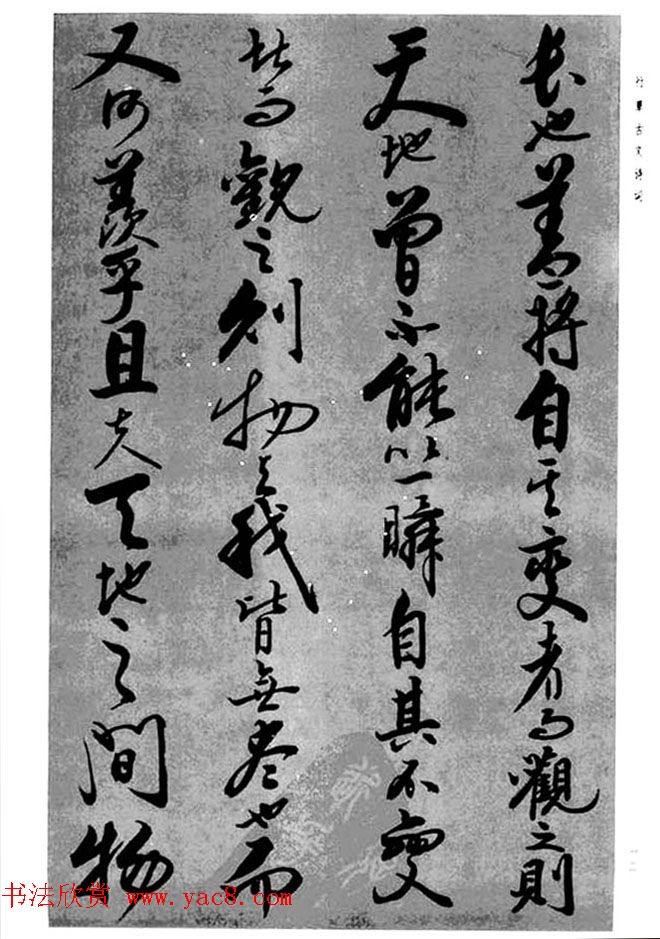 長也蓋將自其變者而觀之則
天地曾不能以一瞬自其不變
者而觀之則物與我皆無盡也而
又何羨乎且夫天地之間物
行草古文詩詞
书法欣赏 www.yac8.com